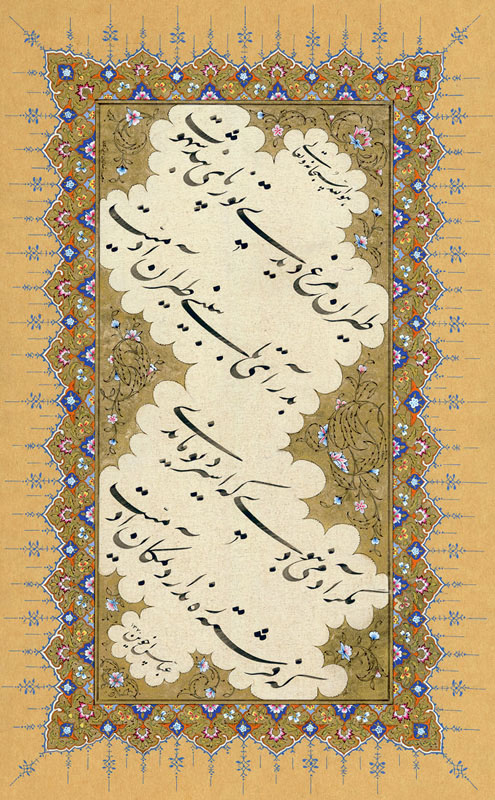 هو الله سبحانه و تعالی
طیران مرغ دیدی تو ز پای بند شهوت
بدر آی تا ببینی طیران آدمیت
مگر آدمی نبودی که اسیر دیو ماندی
که فرشته ره ندارد به مکان آدمیت
عباس اخوین